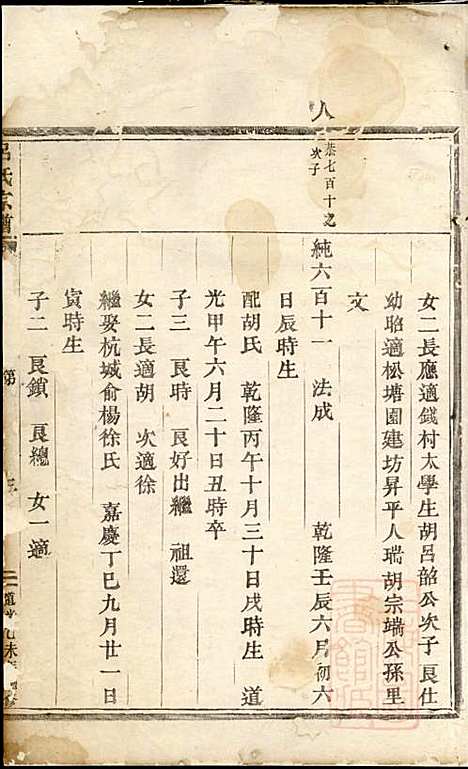 女二長應適錢村太學生胡呂韶公次子良仕
幼昭適松塘園建坊昇平人瑞胡宗端公孫里
文
恭七百十之
次子
純六百十一 法成 乾隆壬辰六月初六
日辰時生
配胡氏 乾隆丙午十月三十日戌時生 道
光甲午六月二十日丑時卒
子三 良時 良好出繼 祖還
女二長適胡 次適徐
繼娶杭城俞楊徐氏 嘉慶丁巳九月廿一日
寅時生
子二 良鎖 良總 女一適
呂氏宗譜
第